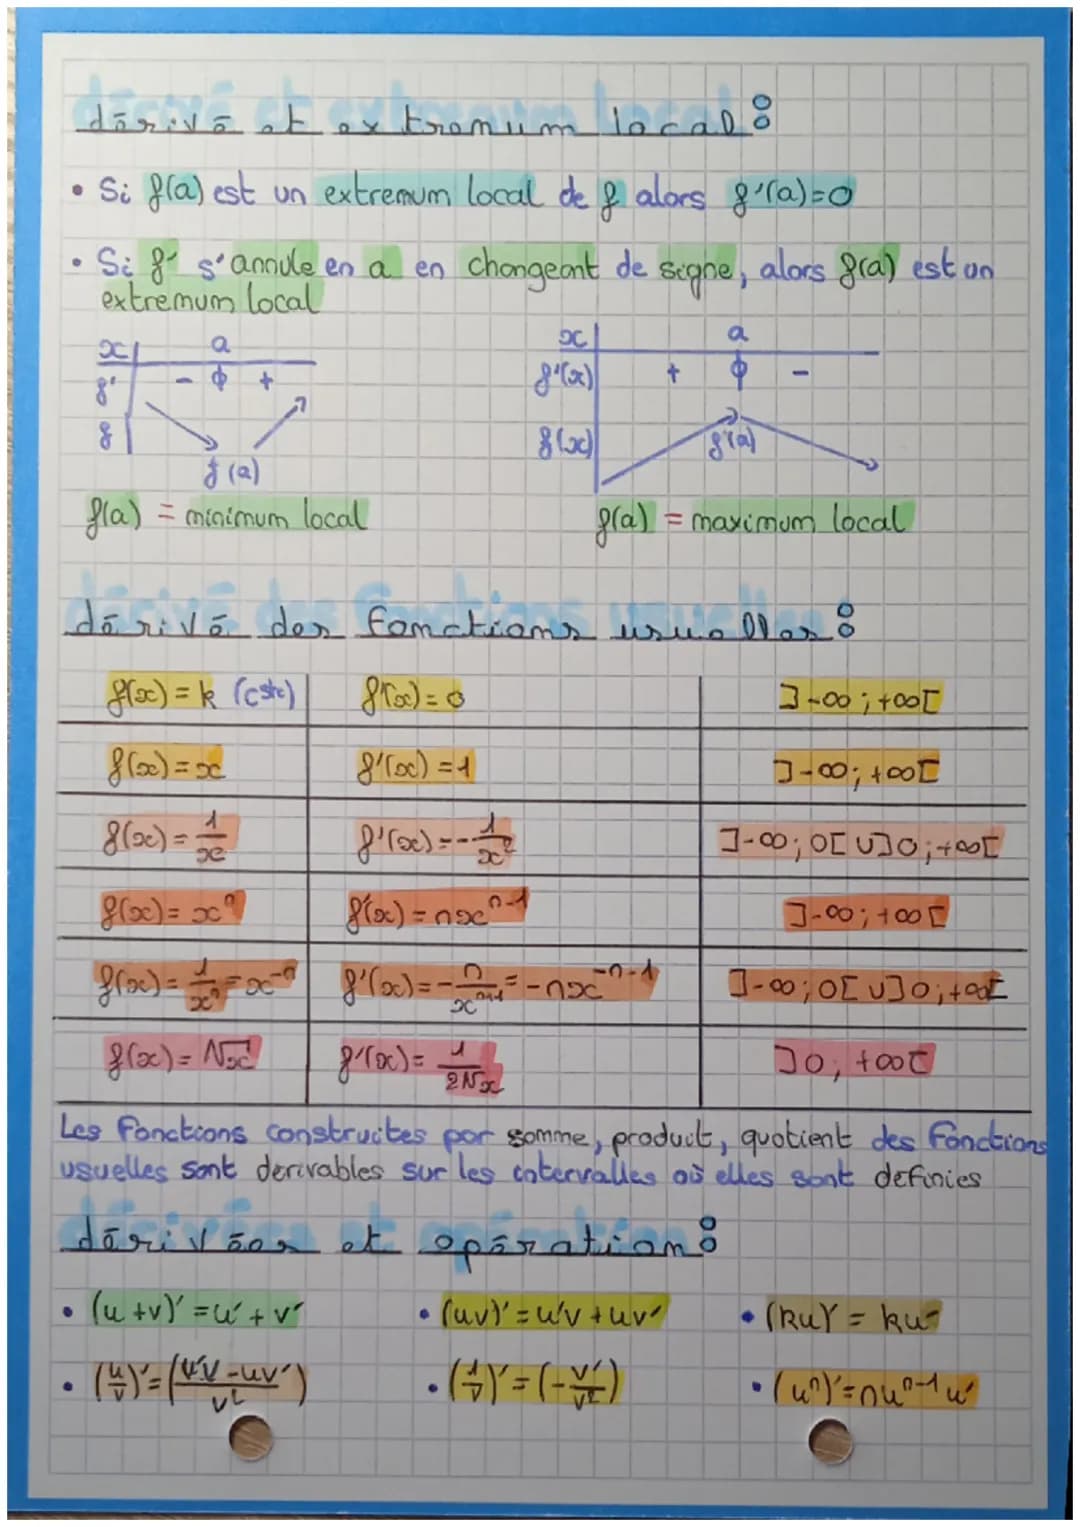 dérivé et extremum local :
• Si f(a) est un extremum local de f alors f'(a)=0
• Si f' s'annule en a en changeant de signe, alors f(a) est un
extremum local
x a
f' - 0 +
f
f(a)
f(a) = minimum local
x a
f'(x) + 0 -
f(x) f(a)
f(a) = maximum local
dérivé des fonctions usuelles :
f(x) = k (cste) f'(x) = 0 ]-∞ ; +∞[
f(x) = x f'(x) = 1 ]-∞ ; +∞[
f(x) = 1/x f'(x) = -1/x² ]-∞ ; 0[ U ]0 ; +∞[
f(x) = xⁿ f'(x) = nxⁿ⁻¹ ]-∞ ; +∞[
f(x) = 1/xⁿ = x⁻ⁿ f'(x) = -n/xⁿ⁺¹ = -nx⁻ⁿ⁻¹ ]-∞ ; 0[ U ]0 ; +∞[
f(x) = √x f'(x) = 1/2√x ]0 ; +∞[
Les fonctions construites par somme, produit, quotient des fonctions
usuelles sont derivables sur les intervalles où elles sont definies
dérivées et opération :
• (u+v)' = u' + v' • (uv)' = u'v + uv' • (ku)' = ku'
• (u/v)' = (u'v - uv'/v²) • (1/v)' = (-v'/v²) • (uⁿ)' = nuⁿ⁻¹ u'